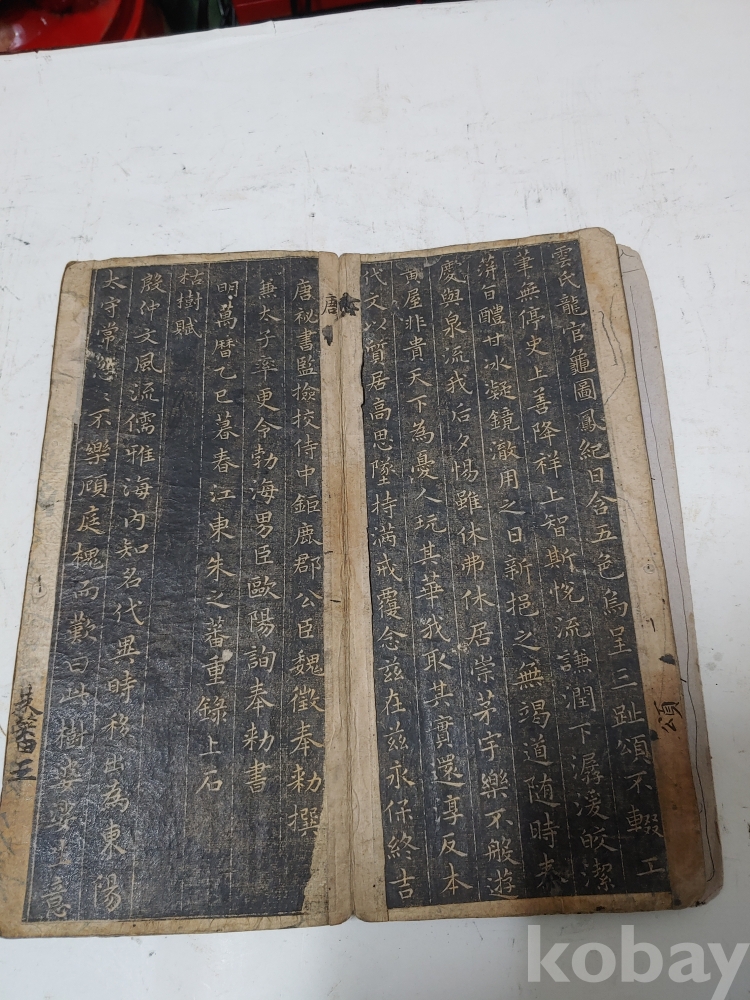 雲氏龍官龜圖鳳紀日含五色烏呈三趾頌不輟工
筆無停史上善降祥上智斯悅流謙潤下潺湲皎潔
蓱旨醴甘冰凝鏡澈用之日新挹之無竭道随時泰
慶與泉流我后夕惕雖休弗休居崇茅宇樂不般遊
黃屋非貴天下為憂人玩其華我取其實還淳反本
代文以質居高思墜持滿戒覆念兹在兹永保終吉
頌
唐
唐秘書監撿挍侍中鉅鹿郡公臣魏徵奉勑撰
兼太子率更令勃海男臣歐陽詢奉勑書
明萬曆乙巳暮春江東朱之蕃重錄上石
枯樹賦
殷仲文風流儒雅海内知名代異時移出為東陽
太守常〻不樂顧庭槐而歎曰此樹婆娑生意
kobay